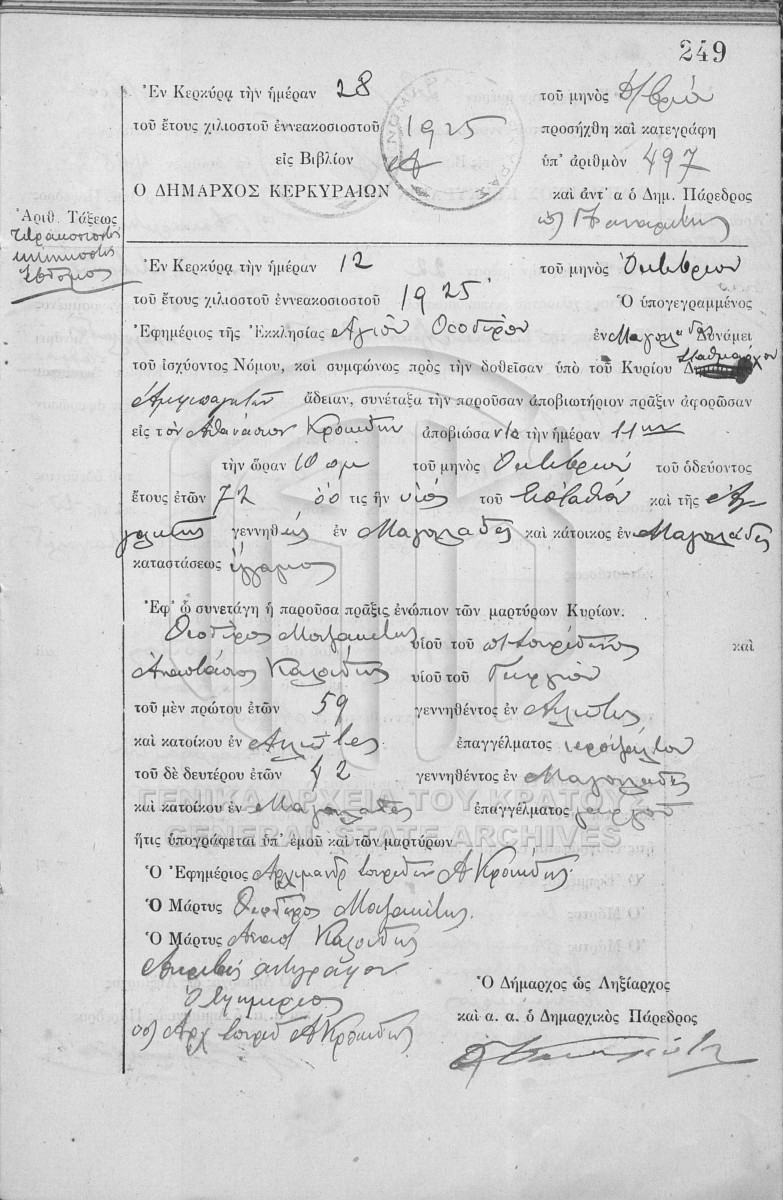 249
Ἐν Κερκύρᾳ τὴν ἡμέραν 28 τοῦ μηνὸς
τοῦ ἔτους χιλιοστοῦ ἐννεακοσιοστοῦ 1925 προσήχθη καὶ κατεγράφη
εἰς Βιβλίον ὑπ' ἀριθμὸν 497
Ο ΔΗΜΑΡΧΟΣ ΚΕΡΚΥΡΑΙΩΝ καὶ ἀντ' α ὁ Δημ. Πάρεδρος
Ἀριθ. Τάξεως
Ἐν Κερκύρᾳ τὴν ἡμέραν 12 τοῦ μηνὸς Ὀκτωβρίου
τοῦ ἔτους χιλιοστοῦ ἐννεακοσιοστοῦ 1925 Ὁ ὑπογεγραμμένος
Ἐφημέριος τῆς Ἐκκλησίας Ἁγίου Θεοδώρου ἐν Δυνάμει
τοῦ ἰσχύοντος Νόμου, καὶ συμφώνως πρὸς τὴν δοθεῖσαν ὑπὸ τοῦ Κυρίου Σταθμάρχου
ἄδειαν, συνέταξα τὴν παροῦσαν ἀποβιωτήριον πρᾶξιν ἀφορῶσαν
εἰς τὸν Ἀθανάσιον ἀποβιώσαντα τὴν ἡμέραν 11ην
τὴν ὥραν 10 πμ τοῦ μηνὸς Ὀκτωβρίου τοῦ ὁδεύοντος
ἔτους ἐτῶν 72 ὅστις ἦν υἱὸς τοῦ Εὐσταθίου καὶ τῆς Ἀγ
γελικῆς γεννηθεὶς ἐν Μαγουλάδες καὶ κάτοικος ἐν Μαγουλάδες
καταστάσεως ἔγγαμος
Ἐφ' ᾧ συνετάγη ἡ παροῦσα πρᾶξις ἐνώπιον τῶν μαρτύρων Κυρίων.
Θεόδωρος υἱοῦ τοῦ Σπυρίδωνος καὶ
Ἀναστάσιος υἱοῦ τοῦ Γεωργίου
τοῦ μὲν πρώτου ἐτῶν 59 γεννηθέντος ἐν
καὶ κατοίκου ἐν ἐπαγγέλματος ἱεροψάλτου
τοῦ δὲ δευτέρου ἐτῶν 42 γεννηθέντος ἐν Μαγουλάδες
καὶ κατοίκου ἐν Μαγουλάδες ἐπαγγέλματος γεωργοῦ
ΓΕΝΙΚΑ ΑΡΧΕΙΑ ΤΟΥ ΚΡΑΤΟΥΣ
GENERAL STATE ARCHIVES
ἥτις ὑπογράφεται ὑπ' ἐμοῦ καὶ τῶν μαρτύρων
Ὁ Ἐφημέριος Ἀρχιμανδρ Σπυρίδων
Ὁ Μάρτυς Θεόδωρος
Ὁ Μάρτυς Ἀναστ
Ἀκριβὲς ἀντίγραφον
Ὁ Ἐφημέριος
Ὁ Δήμαρχος ὡς Ληξίαρχος
καὶ α. α. ὁ Δημαρχικὸς Πάρεδρος